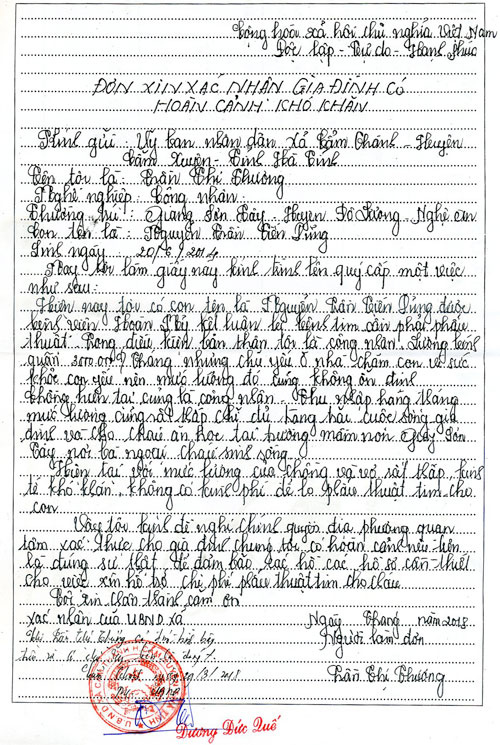 Cộng hóa xã hội chủ nghĩa Việt Nam
Độc lập - Tự do - Hạnh Phúc
ĐƠN XIN XÁC NHẬN GIA ĐÌNH CÓ
HOÀN CẢNH KHÓ KHĂN
Kính gửi: Uỷ ban nhân dân xã Cẩm Thành - Huyện
Cẩm Xuyên - Tỉnh Hà Tĩnh
Tên tôi là: Trần Thị Thương
Nghề nghiệp: Công nhân
Thường trú: Giang Sơn Tây - Huyện Đô Lương, Nghệ an
Con tên là: Nguyễn Trần Tiến Dũng
Sinh ngày: 20/6/2014
Nay tôi làm giấy này kính trình lên quý cấp một việc
như sau:
Hiện nay tôi có con tên là Nguyễn Trần Tiến Dũng được
bệnh viện Hoàn Mỹ kết luận bị bệnh tim cần phải phẫu
thuật. Trong điều kiện bản thân tôi là công nhân. Lương bình
quân 3000.000đ/tháng nhưng chủ yếu ở nhà chăm con vì sức
khỏe con yếu nên mức lương đó cũng không ổn định
Chồng hiện tại cũng là công nhân. Thu nhập hàng tháng
mức lương cũng rất thấp chỉ đủ trang trải cuộc sống gia
đình và cho cháu ăn học tại trường mầm non Giang Sơn
Tây nơi bà ngoại cháu sinh sống.
Hiện tại với mức lương của chồng và vợ rất thấp, kinh
tế khó khăn, không có kinh phí để lo phẫu thuật tim cho
con
Vậy tôi kính đề nghị chính quyền địa phương quan
tâm xác thực cho gia đình chúng tôi có hoàn cảnh nêu trên
là đúng sự thật để đảm bảo các hồ sơ cần thiết
cho việc xin hỗ trợ chi phí phẫu thuật tim cho cháu
Tôi xin chân thành cảm ơn
xác nhận của UBND xã Ngày tháng năm 2018
Người làm đơn
Trần Thị Thương
Dương Đức Quế